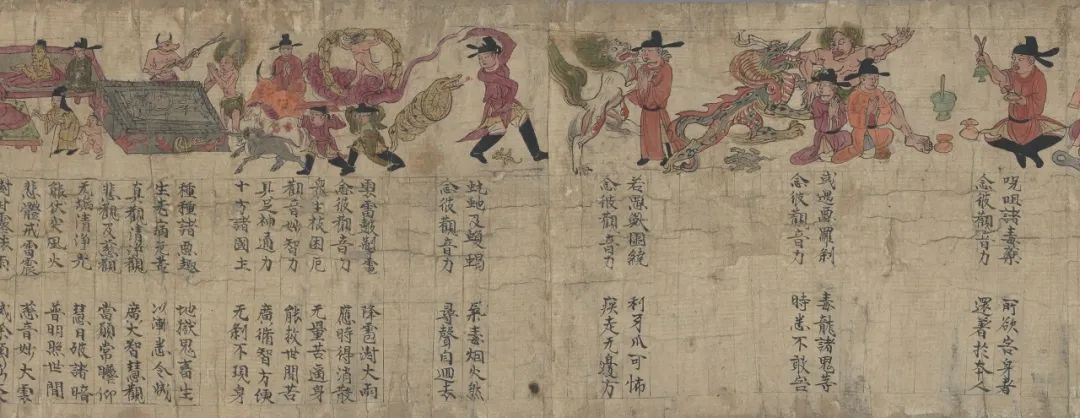 呪咀諸毒藥 所欲害身者
念彼觀音力 還著於本人
或遇惡羅刹 毒龍諸鬼等
念彼觀音力 時悉不敢害
若惡獸圍繞 利牙爪可怖
念彼觀音力 疾走无邊方
蚖虵及蝮蠍 氣毒烟火燃
念彼觀音力 尋聲自迴去
雲雷皷掣電 降雹澍大雨
念彼觀音力 應時得消散
衆生被困厄 无量苦逼身
觀音妙智力 能救世間苦
具足神通力 廣脩智方便
十方諸國土 无刹不現身
種種諸惡趣 地獄鬼畜生
生老病死苦 以漸悉令滅
真觀清淨觀 廣大智慧觀
悲觀及慈觀 當願常瞻仰
无垢清淨光 慧日破諸暗
能伏灾風火 普明照世間
悲體戒雷震 慈音妙大雲